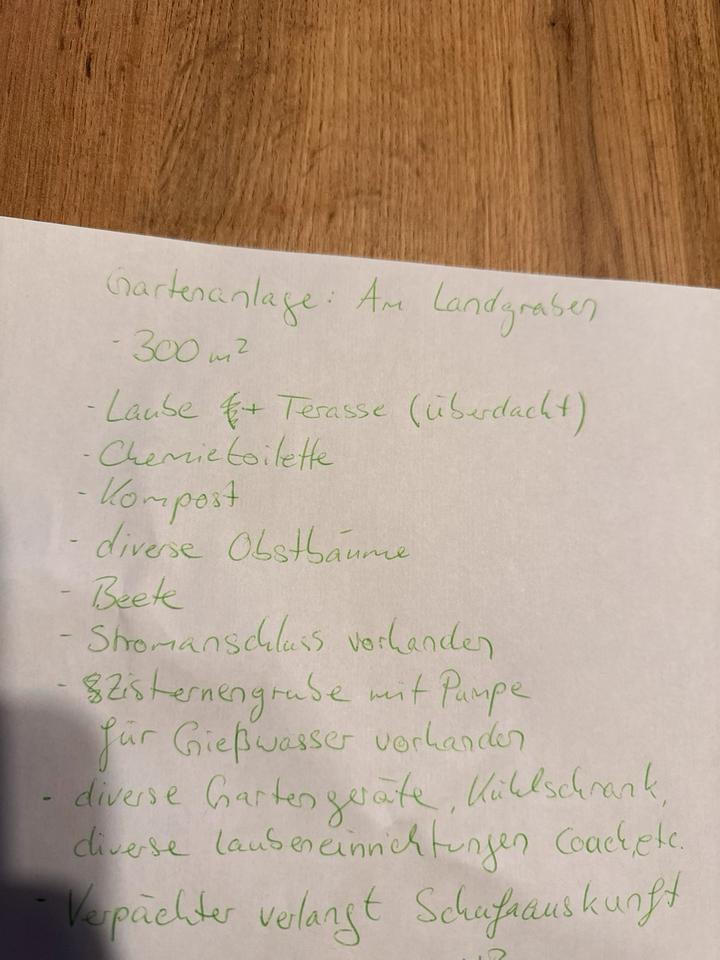 Gartenanlage: Am Landgraben
- 300 m²
- Laube + Terasse (überdacht)
- Chemietoilette
- Kompost
- diverse Obstbäume
- Beete
- Stromanschluss vorhanden
- Zisternengrube mit Pumpe
für Gießwasser vorhanden
- diverse Gartengeräte, Kühlschrank,
diverse Laubeneinrichtungen Coach, etc.
- Verpächter verlangt Schufaauskunft